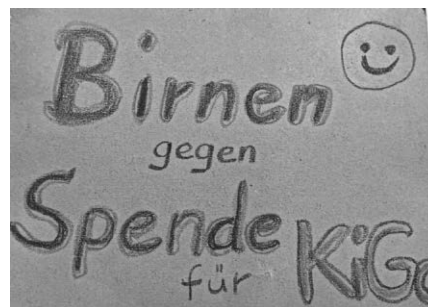 Birnen
gegen
Spende
für KiGa